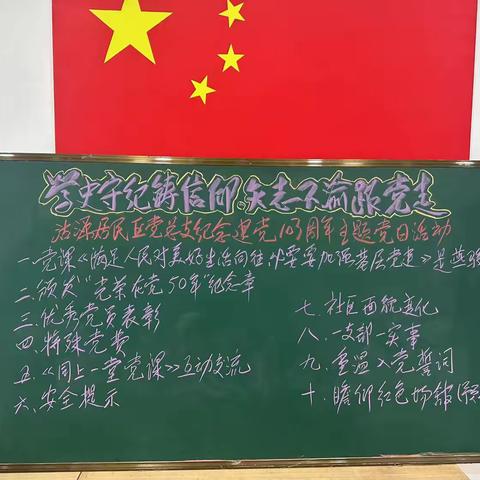 学史守纪铸信仰 矢志不渝跟党走
居民区党总支纪念建党103周年主题党日活动
一.党课《满足人民对美好生活向往 必要加强基层党建》是燕
二.颁发"光荣在党50年"纪念章
三.优秀党员表彰
四.特殊党费
五.《同上一堂党课》互动交流
六.安全提示
七.社区面貌变化
八.一支部一实事
九.重温入党誓词
十.瞻仰红色场馆